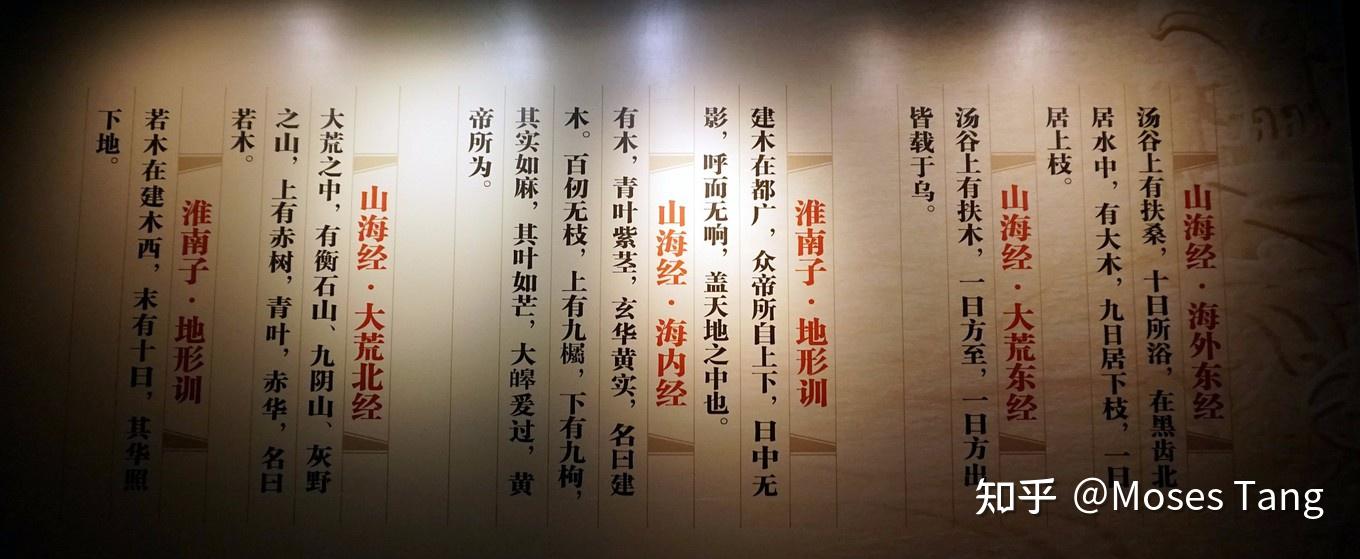 山海经·海外东经
汤谷上有扶桑，十日所浴，在黑齿北
居水中，有大木，九日居下枝，一日
居上枝。
山海经·大荒东经
汤谷上有扶木，一日方至，一日方出
皆载于乌。
淮南子·地形训
建木在都广，众帝所自上下，日中无
影，呼而无响，盖天地之中也。
山海经·海内经
有木，青叶紫茎，玄华黄实，名曰建
木。百仞无枝，上有九欘，下有九枸，
其实如麻，其叶如芒，大皞爰过，黄
帝所为。
山海经·大荒北经
大荒之中，有衡石山、九阴山、灰野
之山，上有赤树，青叶，赤华，名曰
若木。
淮南子·地形训
若木在建木西，末有十日，其华照
下地。
知乎 @Moses Tang